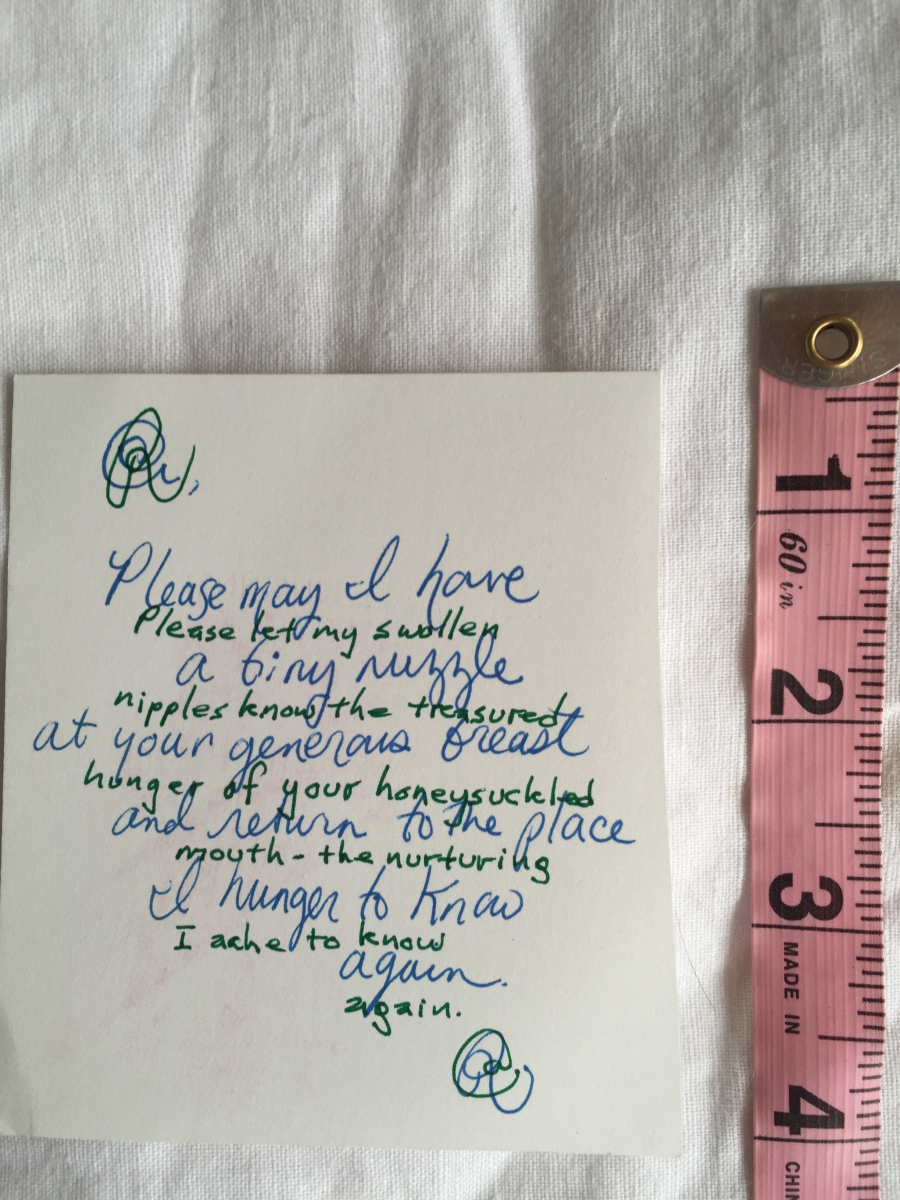 Please may I have
Please let my swollen
a tiny nuzzle
nipples know the treasured
at your generous breast
hunger of your honeysuckled
and return to the place
mouth - the nurturing
I hunger to know
I ache to know
again.
again.
SINGER
1
60 in
2
3
MADE IN
4
CHI